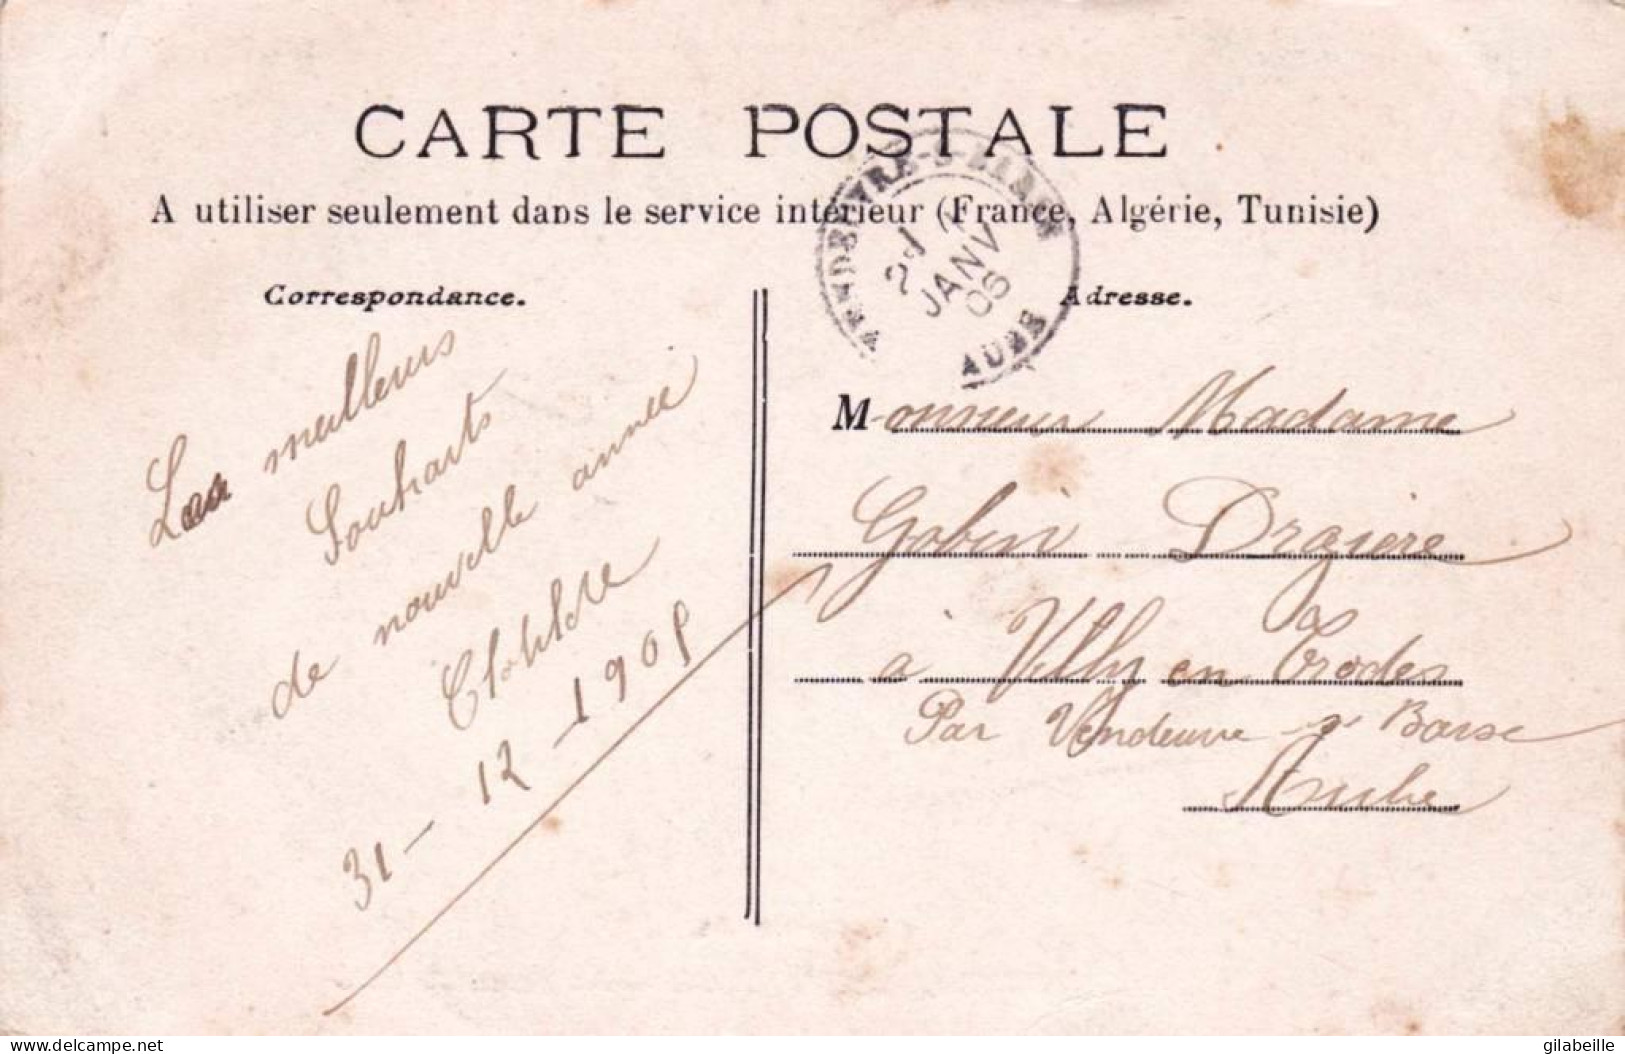 CARTE POSTALE
A utiliser seulement dans le service intérieur (France, Algérie, Tunisie)
Correspondance.
Les meilleurs
Souhaits
de nouvelle année
Clotilde
31-12-1905
VENDEUVRE-S-BARSE
2
JANV
06
AUBE
Adresse.
Monsieur Madame
Gobin
à Villy en Trodes
Par Vendeuvre s Barse
Aube
delcampe.net
gilabeille